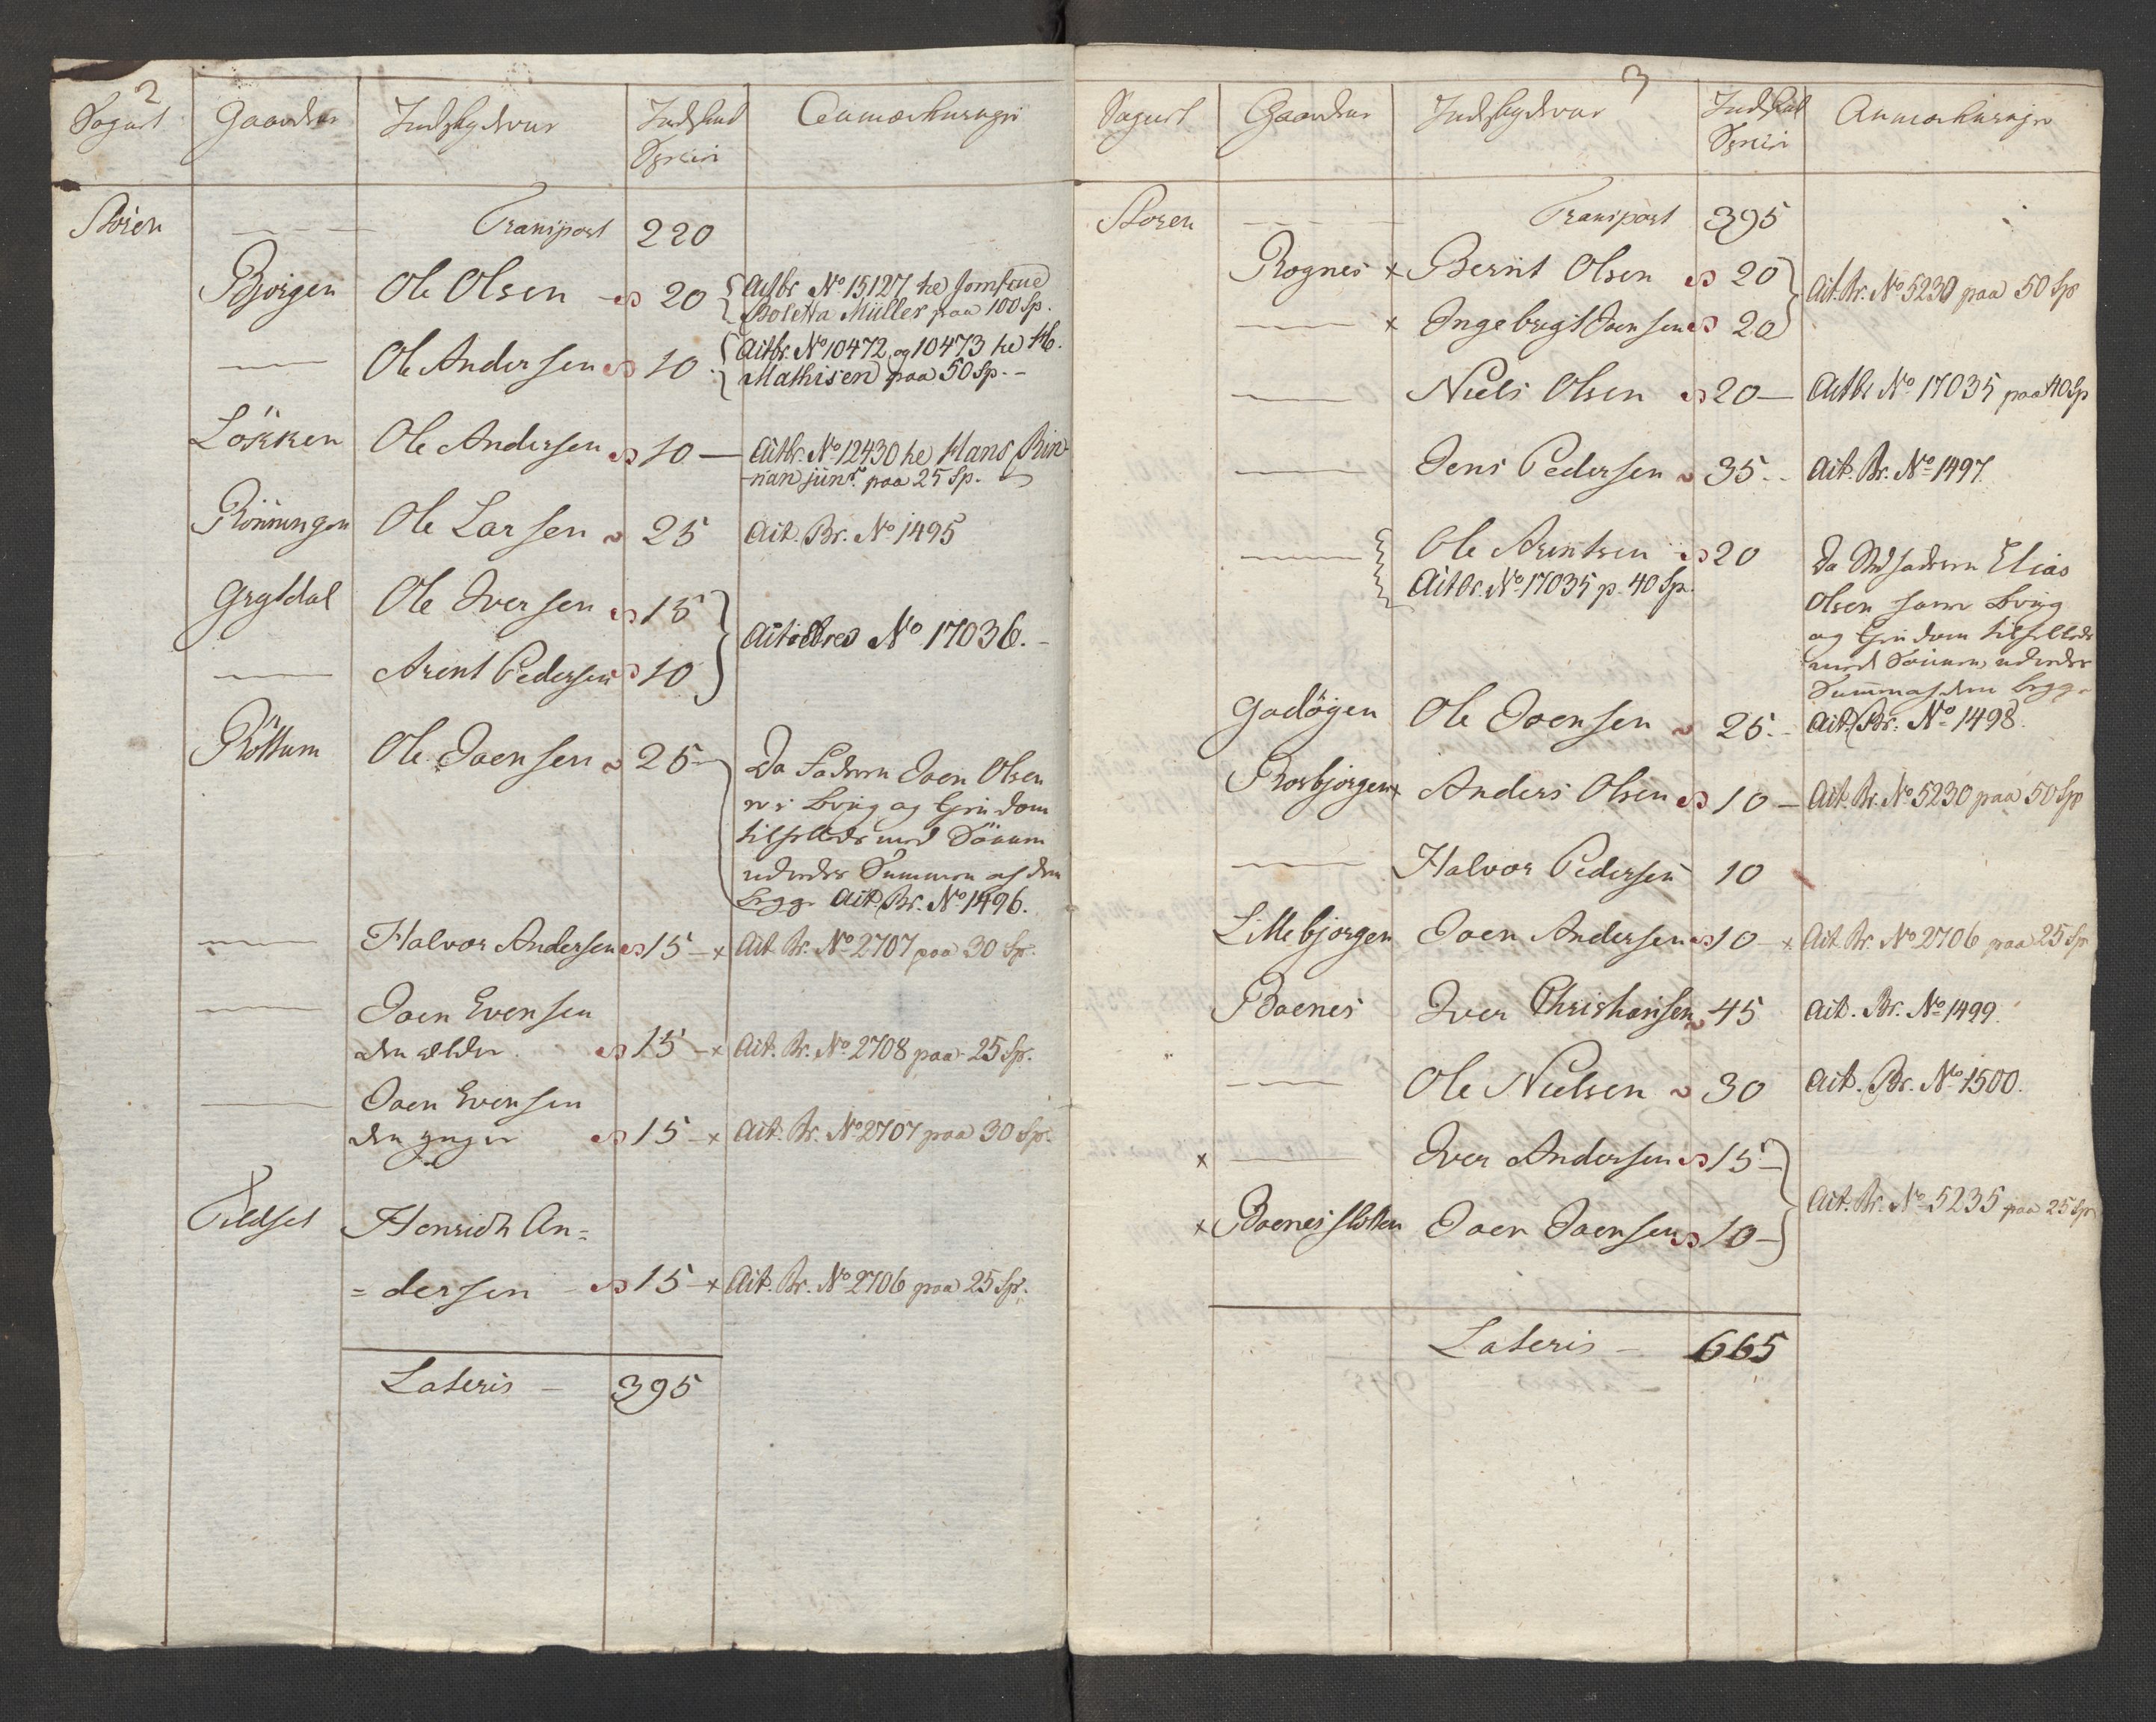 2
Sogart Gaardene Indskydere Indskud Anmærkninger
Specier
Støren Transport 220
Bjørgen Ole Olsen 20 Actbr No 15127 he Jomfrue
Boletta Müller paa 100 Sp.
Ole Andersen 10 Actbr. No 10472 og 10473 he Hb.
Mathisen paa 50 Sp.
Løkken Ole Andersen 10 — Actbr. No 12430 he Hans Rin-
-nan juns. paa 25 Sp.
Rönningen Ole Larsen 25 Act. Br. No 1495
Grytdal Ole Iversen 15
Actiebrev No 17036.
Arent Pedersen 10
Röttum Ole Joensen 25 Da Faderen Joen Olsen
ved Brug og Eiendom
tilfelleds med Sönnen
udreder Summen af dem
begge Act. Br. No 1496.
Halvor Andersen 15 × Act. Br. No 2707 paa 30 Sp.
Joen Evensen
den ældre 15 × Act. Br. No 2708 paa 25 Sp.
Joen Evensen
den yngre 15 × Act. Br. No 2707 paa 30 Sp.
Fildset Henrich An=
=dersen 15 × Act. Br. No 2706 paa 25 Sp.
Lateris — 395
3
Sogart Gaardene Indskydere Indskud Anmærkninger
Specier
Støren Transport 395
Rognes × Bernt Olsen 20 Act. Br. No 5230 paa 50 Sp
× Ingebrigt Joensen 20
Niels Olsen 20 — Actbr No 17035 paa 40 Sp
Jens Pedersen 35 Act. Br. No 1497.
Ole Arentsen 20 Da Elias
Actbr. No 17035 p. 40 Sp.
Olsen som Brug
og Eiendom tilfelleds
med Sönnen, udreder
Summen af dem begge
Gadøgen Ole Joensen 25 Act. Br. No 1498.
Rosbjørgen × Anders Olsen 10 — Act. Br. No 5230 paa 50 Sp
Halvor Pedersen 10
Lillebjorgen Joen Andersen 10 × Act. Br. No 2706 paa 25 Sp
Boenes Iver Christiansen 45 Act. Br. No 1499.
Ole Nielsen 30 Act. Br. No 1500.
× Iver Andersen 15
Act. Br. No 5235 paa 25 Sp
× Boenesslotten Joen Joensen 10
Lateris — 665